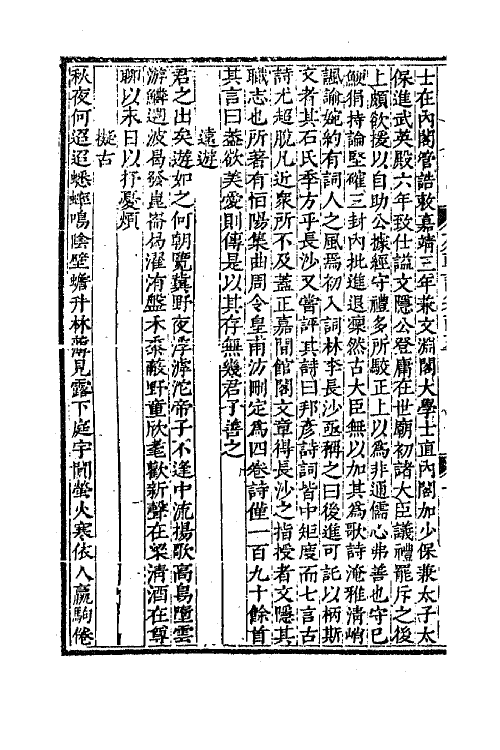 士在內閣管誥敕嘉靖三年兼文淵閣大學士直內閣加少保兼太子太
保進武英殿六年致仕謚文隱公登庸在世廟初諸大臣議禮罷斥之後
上頗欲援以自助公據經守禮多所駮正上以爲非通儒心弗善也守已
鯁狷持論堅確三封內批進退藁然古大臣無以加其爲歌詩淹雅清峭
諷諭婉約有詞人之風焉初入詞林李長沙亟稱之曰後進可託以柄斯
文者其石氏季方乎長沙又嘗評其詩曰邦彦詩詞皆中矩度而七言古
詩尤超脫凡近衆所不及蓋正嘉間館閣文章得長沙之指授者文隱其
職志也所著有恒陽集曲周令皇甫汸刪定爲四卷詩僅一百九十餘首
其言曰蓋欲美愛則傳是以其存無幾君子善之
遠遊
君之出矣遊如之何朝覽冀野夜浮滹沱帝子不逢中流揚歌高鳥墮雲
游鱗迴波曷發崑崙曷濯洧盤禾黍蔽野童欣耄歡新聲在梁清酒在尊
聊以末日以抒憂煩
擬古
秋夜何迢迢蟋蟀鳴陰壁蟾升林薄見露下庭宇闃螢火寒依人羸駒倦